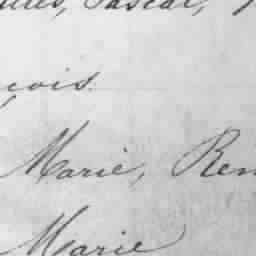 Pascal,
çois.
Marie, Ren
Marie